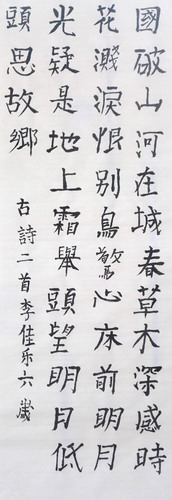 國破山河在城春草木深感時
花濺淚恨别鳥驚心床前明月
光疑是地上霜舉頭望明月低
頭思故鄉
古詩二首李佳乐六歲